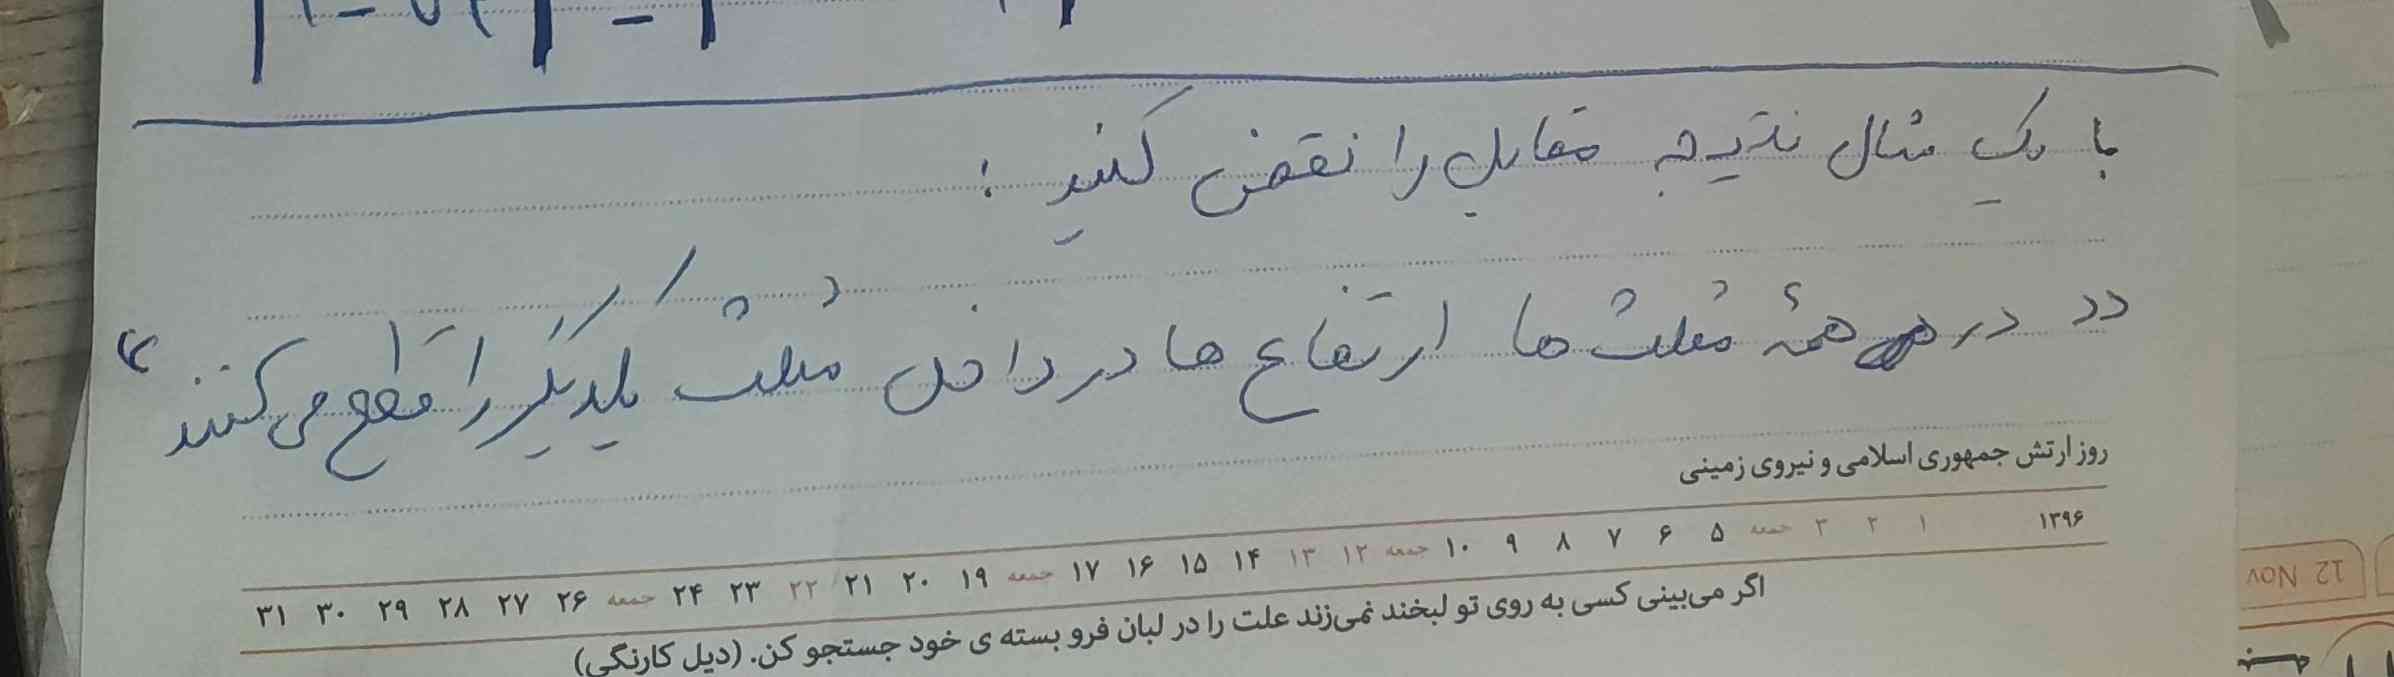 با یک مثال نتیجه مقابل را نقض کنید :
«در همهٔ مثلث ها ارتفاع ها در داخل مثلث یکدیگر را قطع می کنند»
روز ارتش جمهوری اسلامی و نیروی زمینی
۱۳۹۶ ۱ ۲ ۳ جمعه ۵ ۶ ۷ ۸ ۹ ۱۰ جمعه ۱۲ ۱۳ ۱۴ ۱۵ ۱۶ ۱۷ جمعه ۱۹ ۲۰ ۲۱ ۲۲ ۲۳ ۲۴ جمعه ۲۶ ۲۷ ۲۸ ۲۹ ۳۰ ۳۱
اگر می‌بینی کسی به روی تو لبخند نمی‌زند علت را در لبان فرو بسته ی خود جستجو کن. (دیل کارنگی)
12 Nov